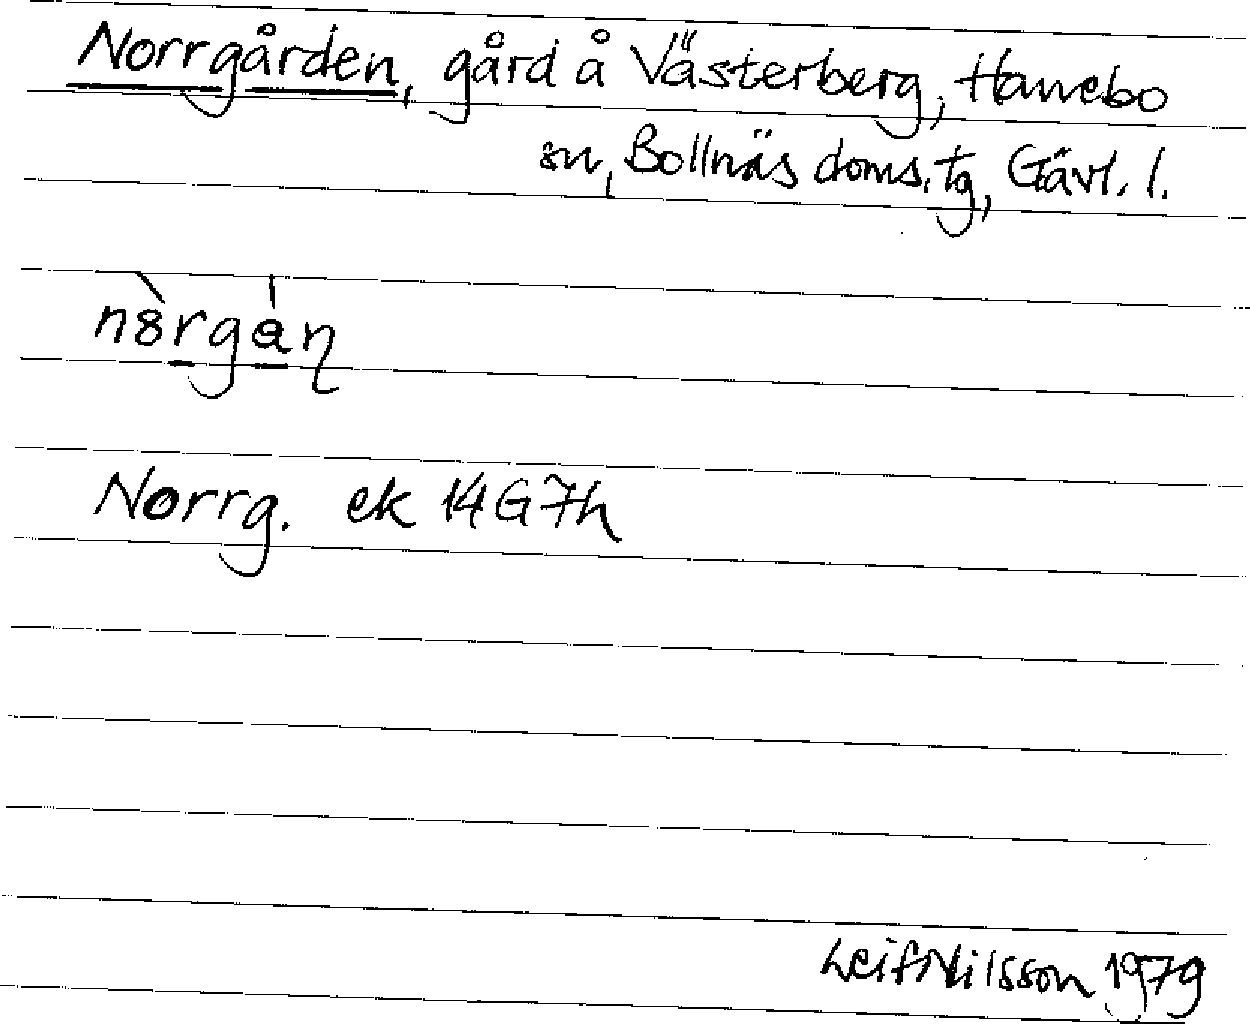 Norrgården, gård å Västerberg, Hanebo
sn, Bollnäs doms. tg, Gävl. l.
Norrg. ek 14G7h
Leif Nilsson 1979